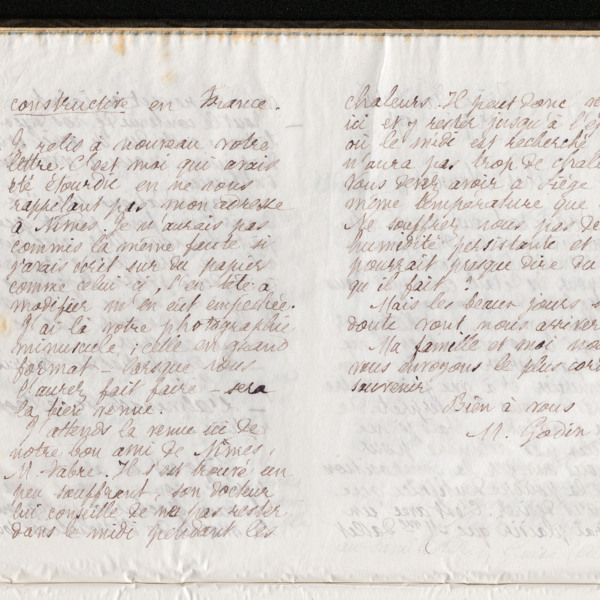 constructive en France.
Je relis à nouveau votre
lettre. C'est moi qui avais
été étourdie en ne vous
rappelant pas mon adresse
à Nîmes. Je n'aurais pas
commis la même faute si
j'avais écrit sur du papier
comme celui ci, l'en tête à
modifier m'en eut empêchée.
J'ai là votre photographie
minuscule ; celle en grand
format – lorsque vous
l'aurez fait faire – sera
la bien venue.
J'attends la venue ici de
notre bon ami de Nîmes,
M. Fabre. Il s'est trouvé un
peu souffrant, son docteur
lui conseille de ne pas rester
dans le midi pendant les
chaleurs. Il peut donc
ici et y rester jusqu'à
où le midi est recherché
n'aura pas trop de
Vous devez avoir à Liège
même température que
Ne souffrez vous pas de
humidité persistante et
pourrait presque dire du
qu'il fait ?
Mais les beaux jours
doute vont nous arriver
Ma famille et moi
vous envoyons le plus
souvenir
Bien à vous
M. Godin